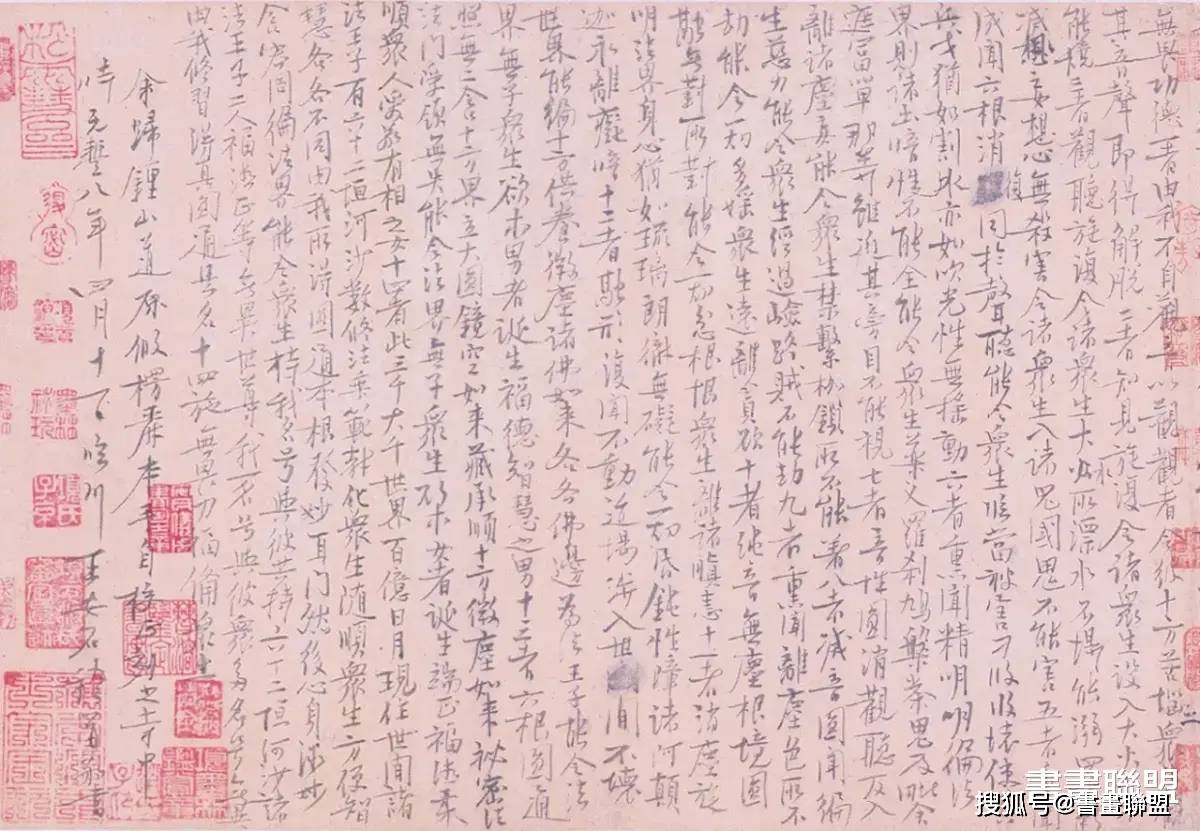 無畏功德一者由我不自觀音以觀觀者令彼十方苦惱眾
其音聲即得解脫二者知見旋復令諸眾生設入大火
能燒三者觀聽旋復令諸眾生大水所漂水不能溺四
滅妄想心無殺害令諸眾生入諸鬼國鬼不能害五者聞
成聞六根消復同於聲聽能令眾生臨當被害刀段段壞使
兵戈猶如割水亦如吹光性無搖動六者熏聞精明明徧法
界則諸幽暗性不能全能令眾生藥叉羅剎鳩槃茶鬼及毗舍
遮富單那等雖近其旁目不能視七者音性圓消觀聽反入
離諸塵妄能令眾生禁繫枷鎖所不能著八者滅音圓聞徧
生慈力能令眾生經過嶮路賊不能劫九者熏聞離塵色所不
劫能令一切多婬眾生遠離貪欲十者純音無塵根境圓
融無對所對能令一切忿恨眾生離諸瞋恚十一者消塵旋
明法界身心猶如琉璃朗徹無礙能令一切昏鈍性障諸阿顛
迦永離癡暗十二者融形復聞不動道場涉入世間不壞
世界能徧十方供養微塵諸佛如來各各佛邊為法王子能令法
界無子眾生欲求男者誕生福德智慧之男十三者六根圓通
照無二含十方界立大圓鏡空如來藏承順十方微塵如來祕密法
法門受領無失能令法界無子眾生欲求女者誕生端正福德柔
順眾人愛敬有相之女十四者此三千大千世界百億日月現住世間諸
法王子有六十二恒河沙數修法垂範教化眾生隨順眾生方便智
慧各各不同由我所得圓通本根發妙耳門然後心身微妙
含容周徧法界能令眾生持我名号與彼共持六十二恒河沙諸
法王子二人福德正等無異世尊我一名号與彼眾多名号無異
由我修習得真圓通是名十四施無畏力福備眾生
余歸鍾山道原假楞嚴本手自校正刻之寺中
時元豐八年四月十一日臨川王安石稽首敬書
書畫聯盟
搜狐号@書畫聯盟